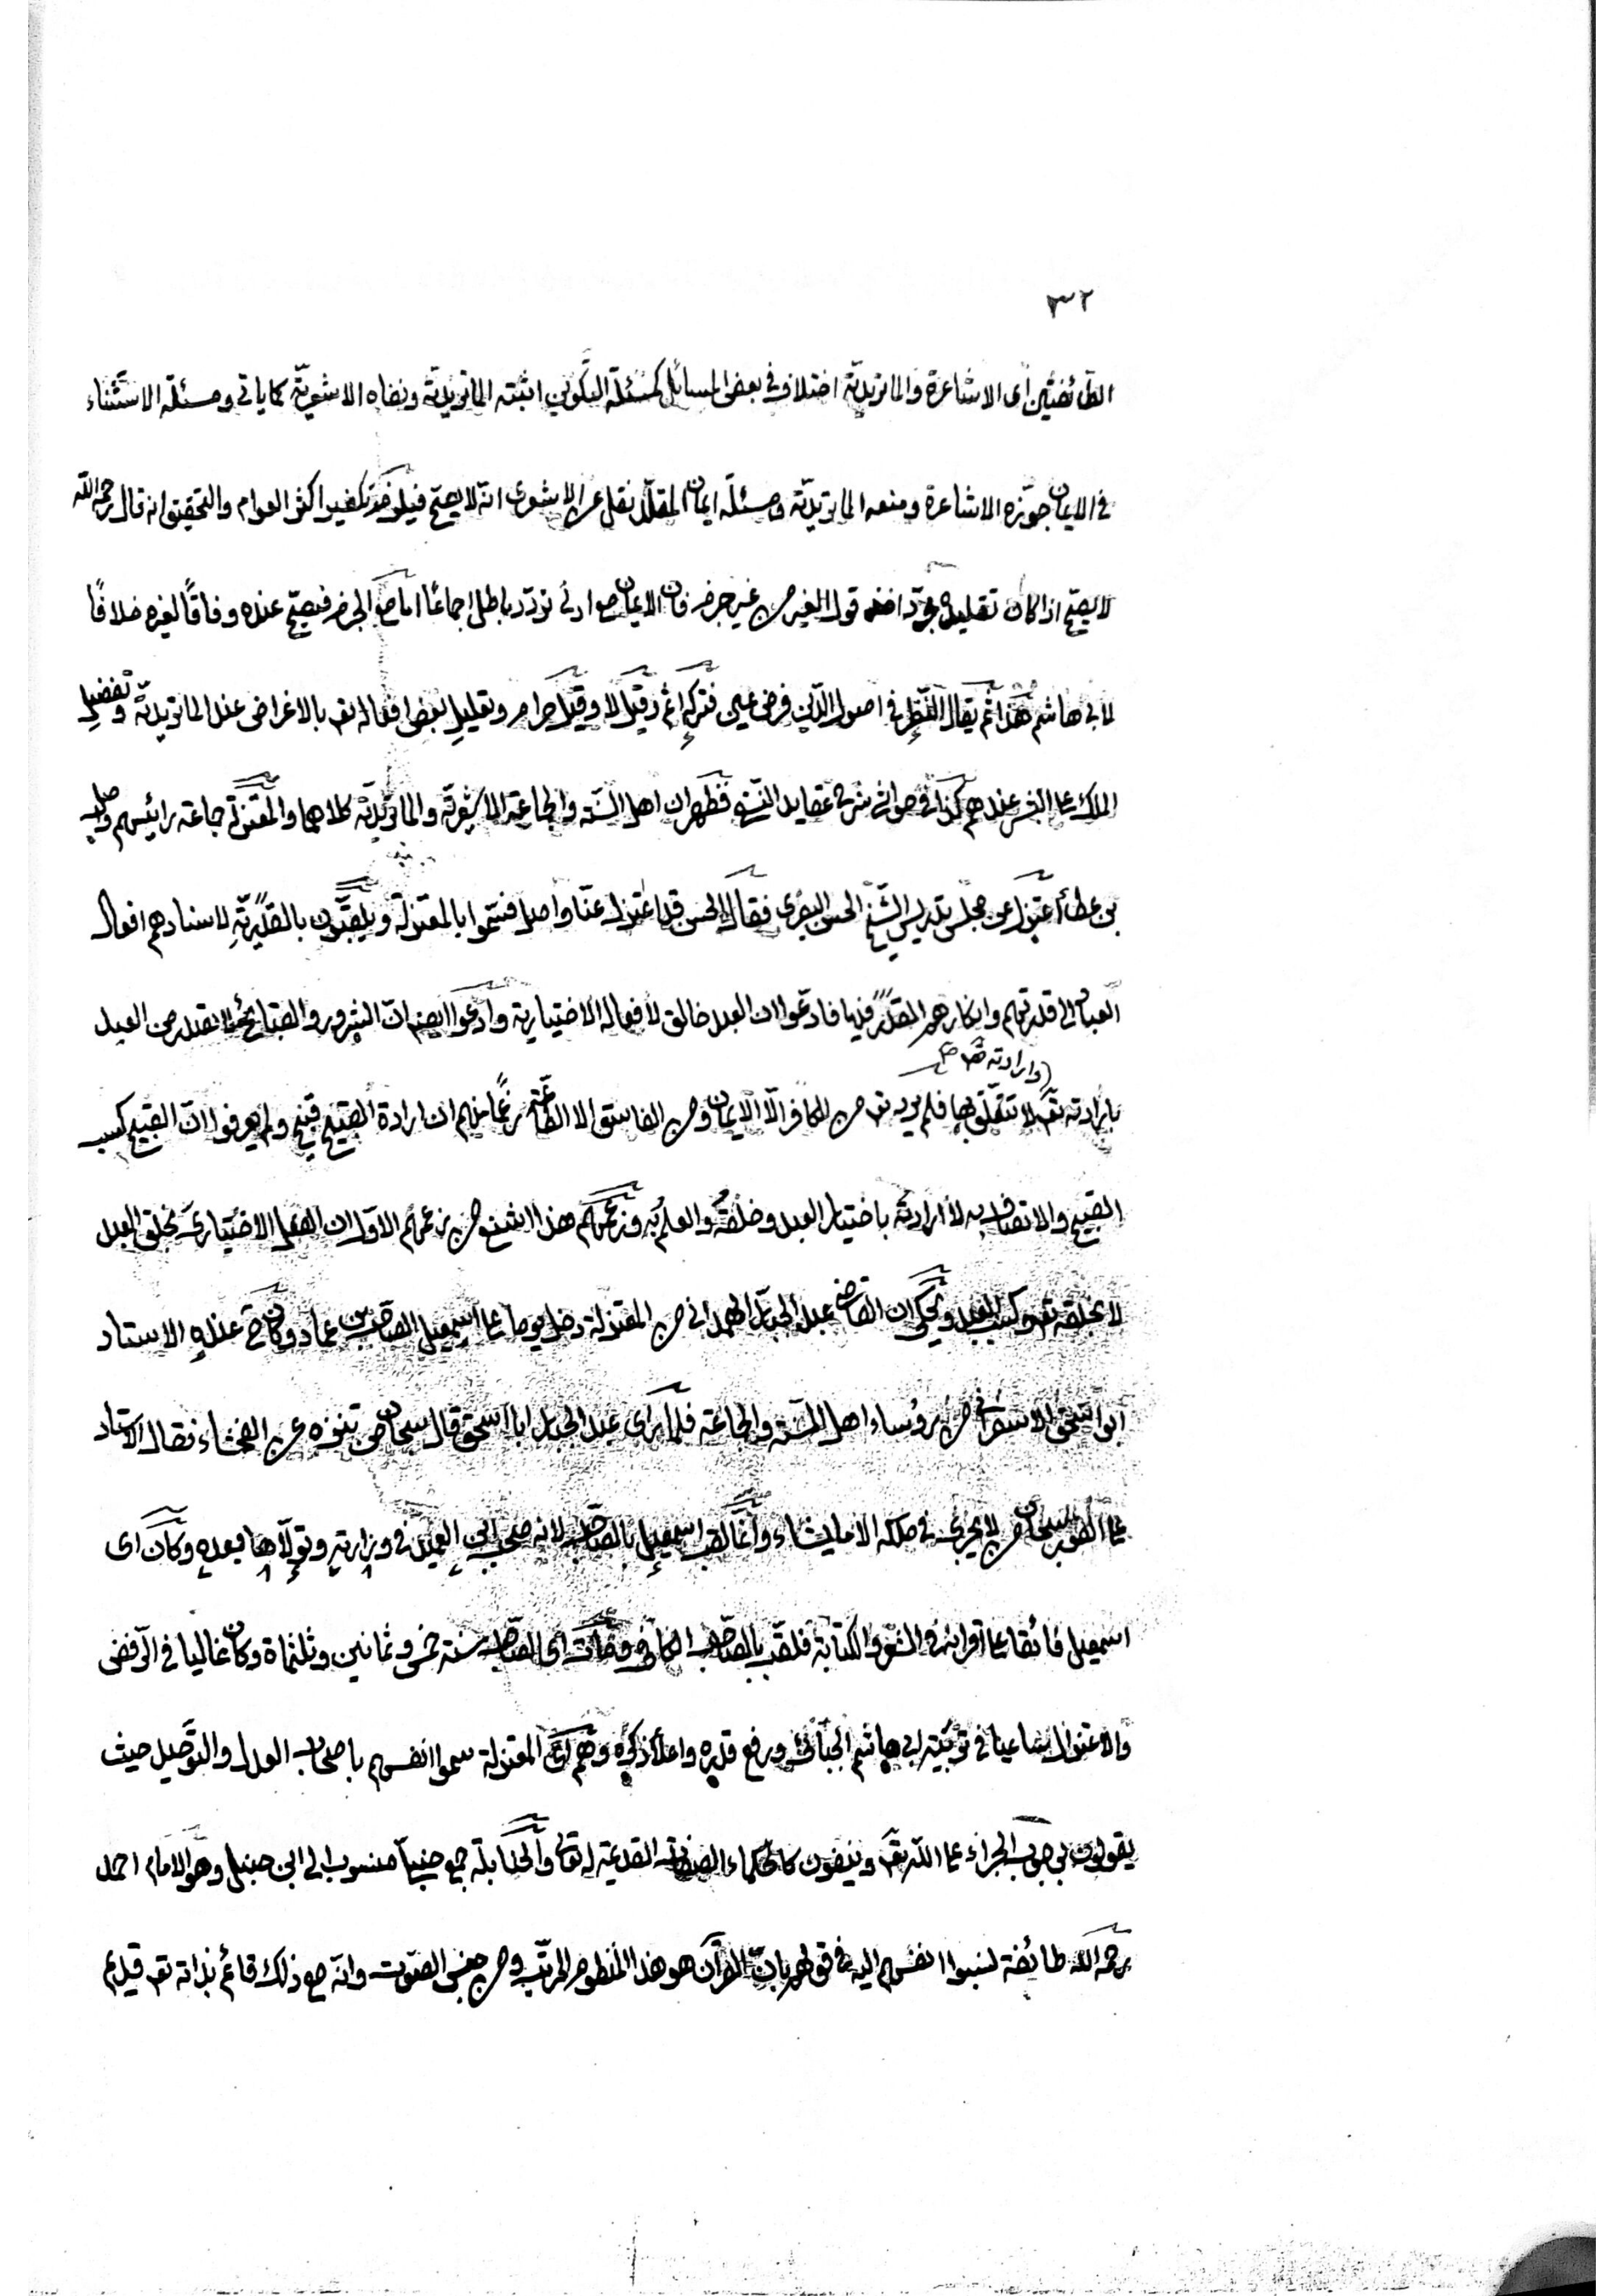 ٣٢
الطائفتين أى الاشاعرة والماتريديّة اختلاف في بعض المسائل كمسئلة التكوين اثبته الماتريديّة ونفاه الاشعريّة كما ياتى ومسئلة الاستثناء
في الايمان جوّزه الاشاعرة ومنعه الماتريديّة ومسئلة ايمان المقلّد نقل عن الاشعرى انه لا يصحّ فيلزم تكفير اكثر العوام والتحقيق انه قال رحمه الله
لا يصحّ اذا كان تقليده مجرّد اخذ قول الغير من غير جزم فان الايمان مع ادنى تردّد باطل اجماعًا اما مع الجزم فيصحّ عنده وفاقًا لغيره خلافًا
لابى هاشم هذا ثم يقال النظر في اصول الدّين فرض عين فتركه اثم وقيل لا وقيل حرام وتعليل بعض افعاله تعـ بالاغراض عند الماتريديّة وتفضيل
الملك على البشر عندهم كذا في حواشى شرح عقايد النسفى فظهر ان اهل السّنة والجماعة الاشعريّة والماتريديّة كلاهما والمعتزلة جماعة رائيسهم واصل
بن عطاء اعتزل عن مجلس تدريس الشيخ الحسن البصرى فقال الحسن قد اعتزل عنّا واصل فسمّوا بالمعتزلة ويلقّبون بالقدريّة لاسنادهم افعال
العباد الى قدرتهم وانكارهم القدر فيها فادّعوا ان العبد خالق لافعاله الاختيارية وادّعوا ايضا ان الشرور والقبائح الصادرة من العبد
(وارادته تعـ صح
بارادته تعـ لا تتعلّق بها فلم يرد تعـ من الكافر الّا الايمان ومن الفاسق الا الطاعة زعمًا منهم ان ارادة القبيح قبيح ولم يعرفوا انّ القبيح كسب
القبيح والاتصاف به لا ارادته باختيار العبد وخلقه والعلم به وزعمهم هذا اشنع من زعمهم الاوّل ان الفعل الاختيارى بخلق العبد
لا بخلقه تعـ وكسب العبد ويحكى ان القاضى عبد الجبّار الهمدانى من المعتزلة دخل يوما على اسمعيل الصاحب بن عماد وكان عنده الاستاد
ابو اسحق الاسفراينى من رؤساء اهل السّنة والجماعة فلما رأى عبد الجبار ابا اسحق قال سبحان من تنزه عن الفحشاء فقال الاستاد
على الفور سبحان من لا يجرى في ملكه الا ما يشاء وانّما لقب اسمعيل بالصاحب لانه صحب ابن العميد في وزارته وتولّاها بعده وكان اى
اسمعيل فائقا على اقرانه في الشعر والكتابة فلقّب بالصاحب الكافى ومات اى الصاحب سنة خمس وثمانين وثلثماة وكان غاليا في الرّفض
والاعتزال ساعيا في تربية ابى هاشم الجبّائى ورفع قدره واعلاء ذكره وهم اى المعتزلة سموا انفسهم باصحاب العدل والتوحيد حيث
يقولون بوجوب الجزاء على الله تعـ وينفون كالحكماء الصفات القديمة له تعالى والحنابلة جمع حنبلىّ منسوب الى ابن حنبل وهو الامام احمد
رحمه الله طائفة نسبوا انفسهم اليه في قولهم بانّ القرآن هو هذا المنظوم المرتّب ومن جنس الصّوت وانّه مع ذلك قائم بذاته تعـ قديم